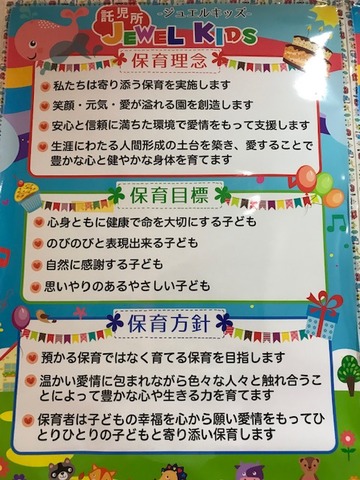 託児所
-ジュエルキッズ-
JEWEL KIDS
保育理念
私たちは寄り添う保育を実施します
笑顔・元気・愛が溢れる園を創造します
安心と信頼に満ちた環境で愛情をもって支援します
生涯にわたる人間形成の土台を築き、愛することで
豊かな心と健やかな身体を育てます
保育目標
心身ともに健康で命を大切にする子ども
のびのびと表現出来る子ども
自然に感謝する子ども
思いやりのあるやさしい子ども
保育方針
預かる保育ではなく育てる保育を目指します
温かい愛情に包まれながら色々な人々と触れ合うこ
とによって豊かな心や生きる力を育てます
保育者は子どもの幸福を心から願い愛情をもってひ
とりひとりの子どもと寄り添い保育します